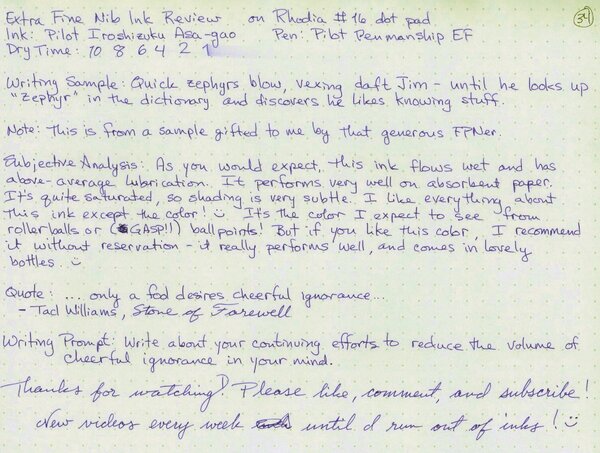 Extra Fine Nib Ink Review on Rhodia #16 dot pad 34
Ink: Pilot Iroshizuku Asa-gao Pen: Pilot Penmanship EF
Dry Time: 10 8 6 4 2 1
Writing Sample: Quick zephyrs blow, vexing daft Jim - until he looks up
"zephyr" in the dictionary and discovers he likes knowing stuff.
Note: This is from a sample gifted to me by that generous FPNer.
Subjective Analysis: As you would expect, this ink flows wet and has
above-average lubrication. It performs very well on absorbent paper.
It's quite saturated, so shading is very subtle. I like everything about
this ink except the color! It's the color I expect to see from
rollerballs or (GASP!!) ballpoints! But if you like this color, I recommend
it without reservation - it really performs well, and comes in lovely
bottles.
Quote: ... only a fool desires cheerful ignorance...
- Tad Williams, Stone of Farewell
Writing Prompt: Write about your continuing efforts to reduce the volume of
cheerful ignorance in your mind.
Thanks for watching! Please like, comment, and subscribe!
New videos every week until I run out of inks!